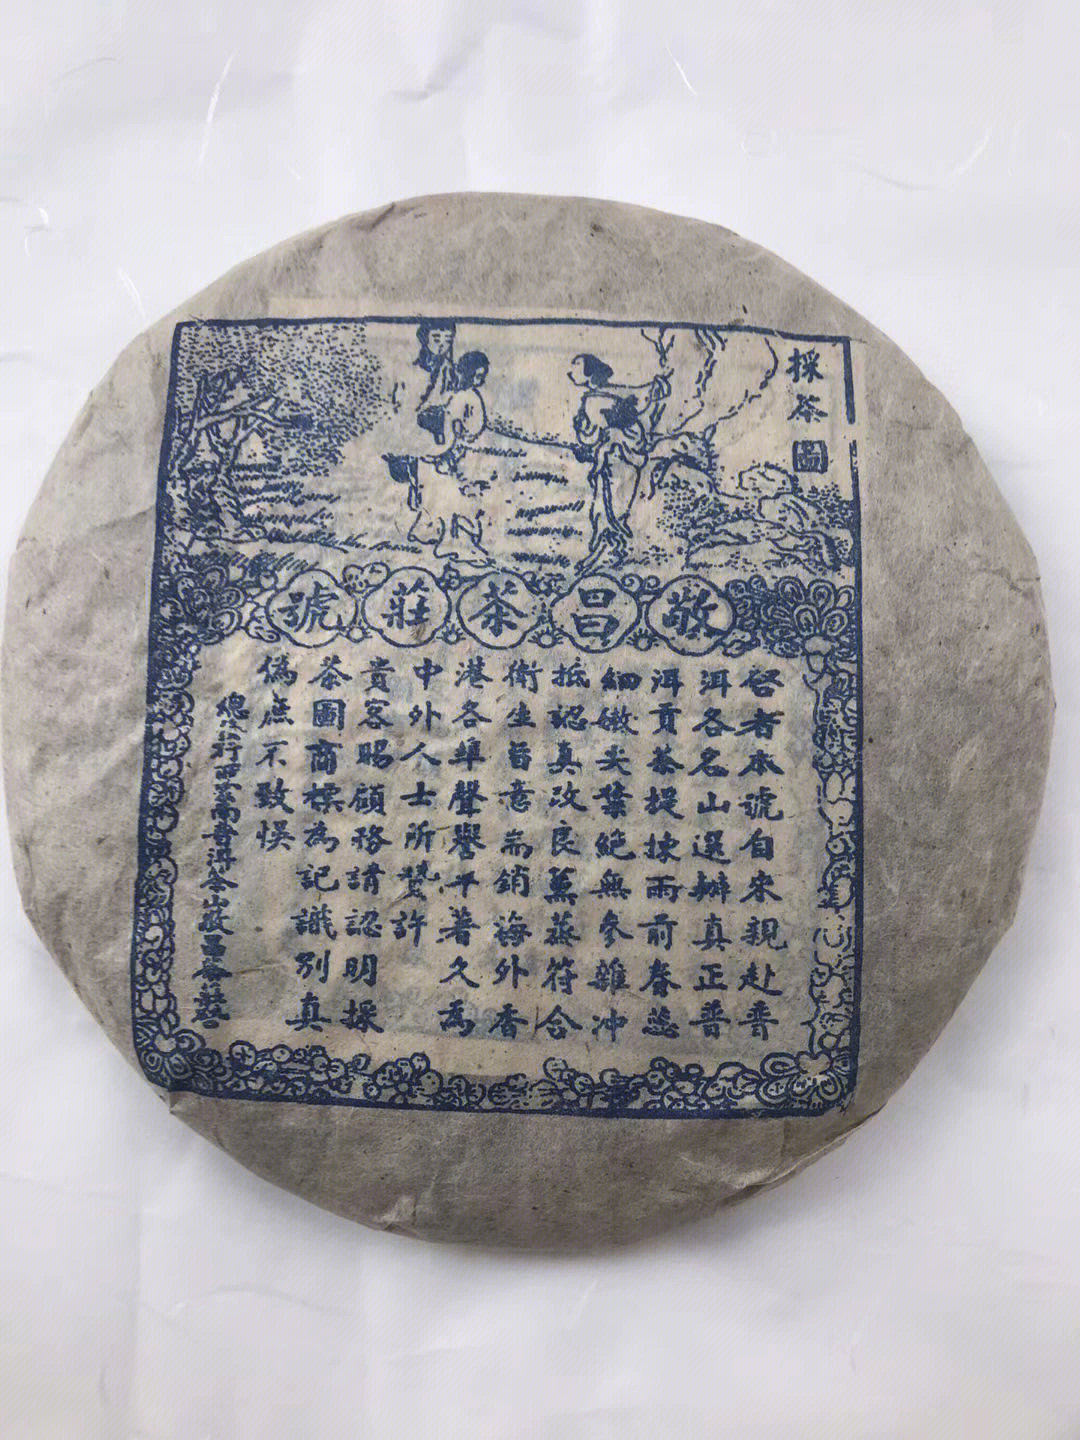 採茶圖
敬昌茶莊號
啓者本號自來親赴普
洱各名山選辦真正普
洱貢茶提揀雨前春蕊
細嫩尖葉絕無參雜冲
抵認真改良薰蒸符合
衛生旨意耑銷海外香
港各埠聲譽平著久為
中外人士所贊許
貴客賜顧務請認明採
茶圖商標為記識別真
偽庶不致悞
總行雲南普洱茶山敬昌茶莊啓